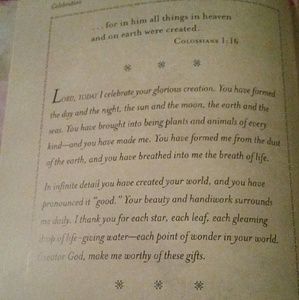 Celebration
. . . for in him all things in heaven
and on earth were created.
COLOSSIANS 1:16
LORD, TODAY I celebrate your glorious creation. You have formed
the day and the night, the sun and the moon, the earth and the
seas. You have brought into being plants and animals of every
kind—and you have made me. You have formed me from the dust
of the earth, and you have breathed into me the breath of life.
In infinite detail you have created your world, and you have
pronounced it "good." Your beauty and handiwork surrounds
me daily. I thank you for each star, each leaf, each gleaming
drop of life-giving water—each point of wonder in your world.
Creator God, make me worthy of these gifts.